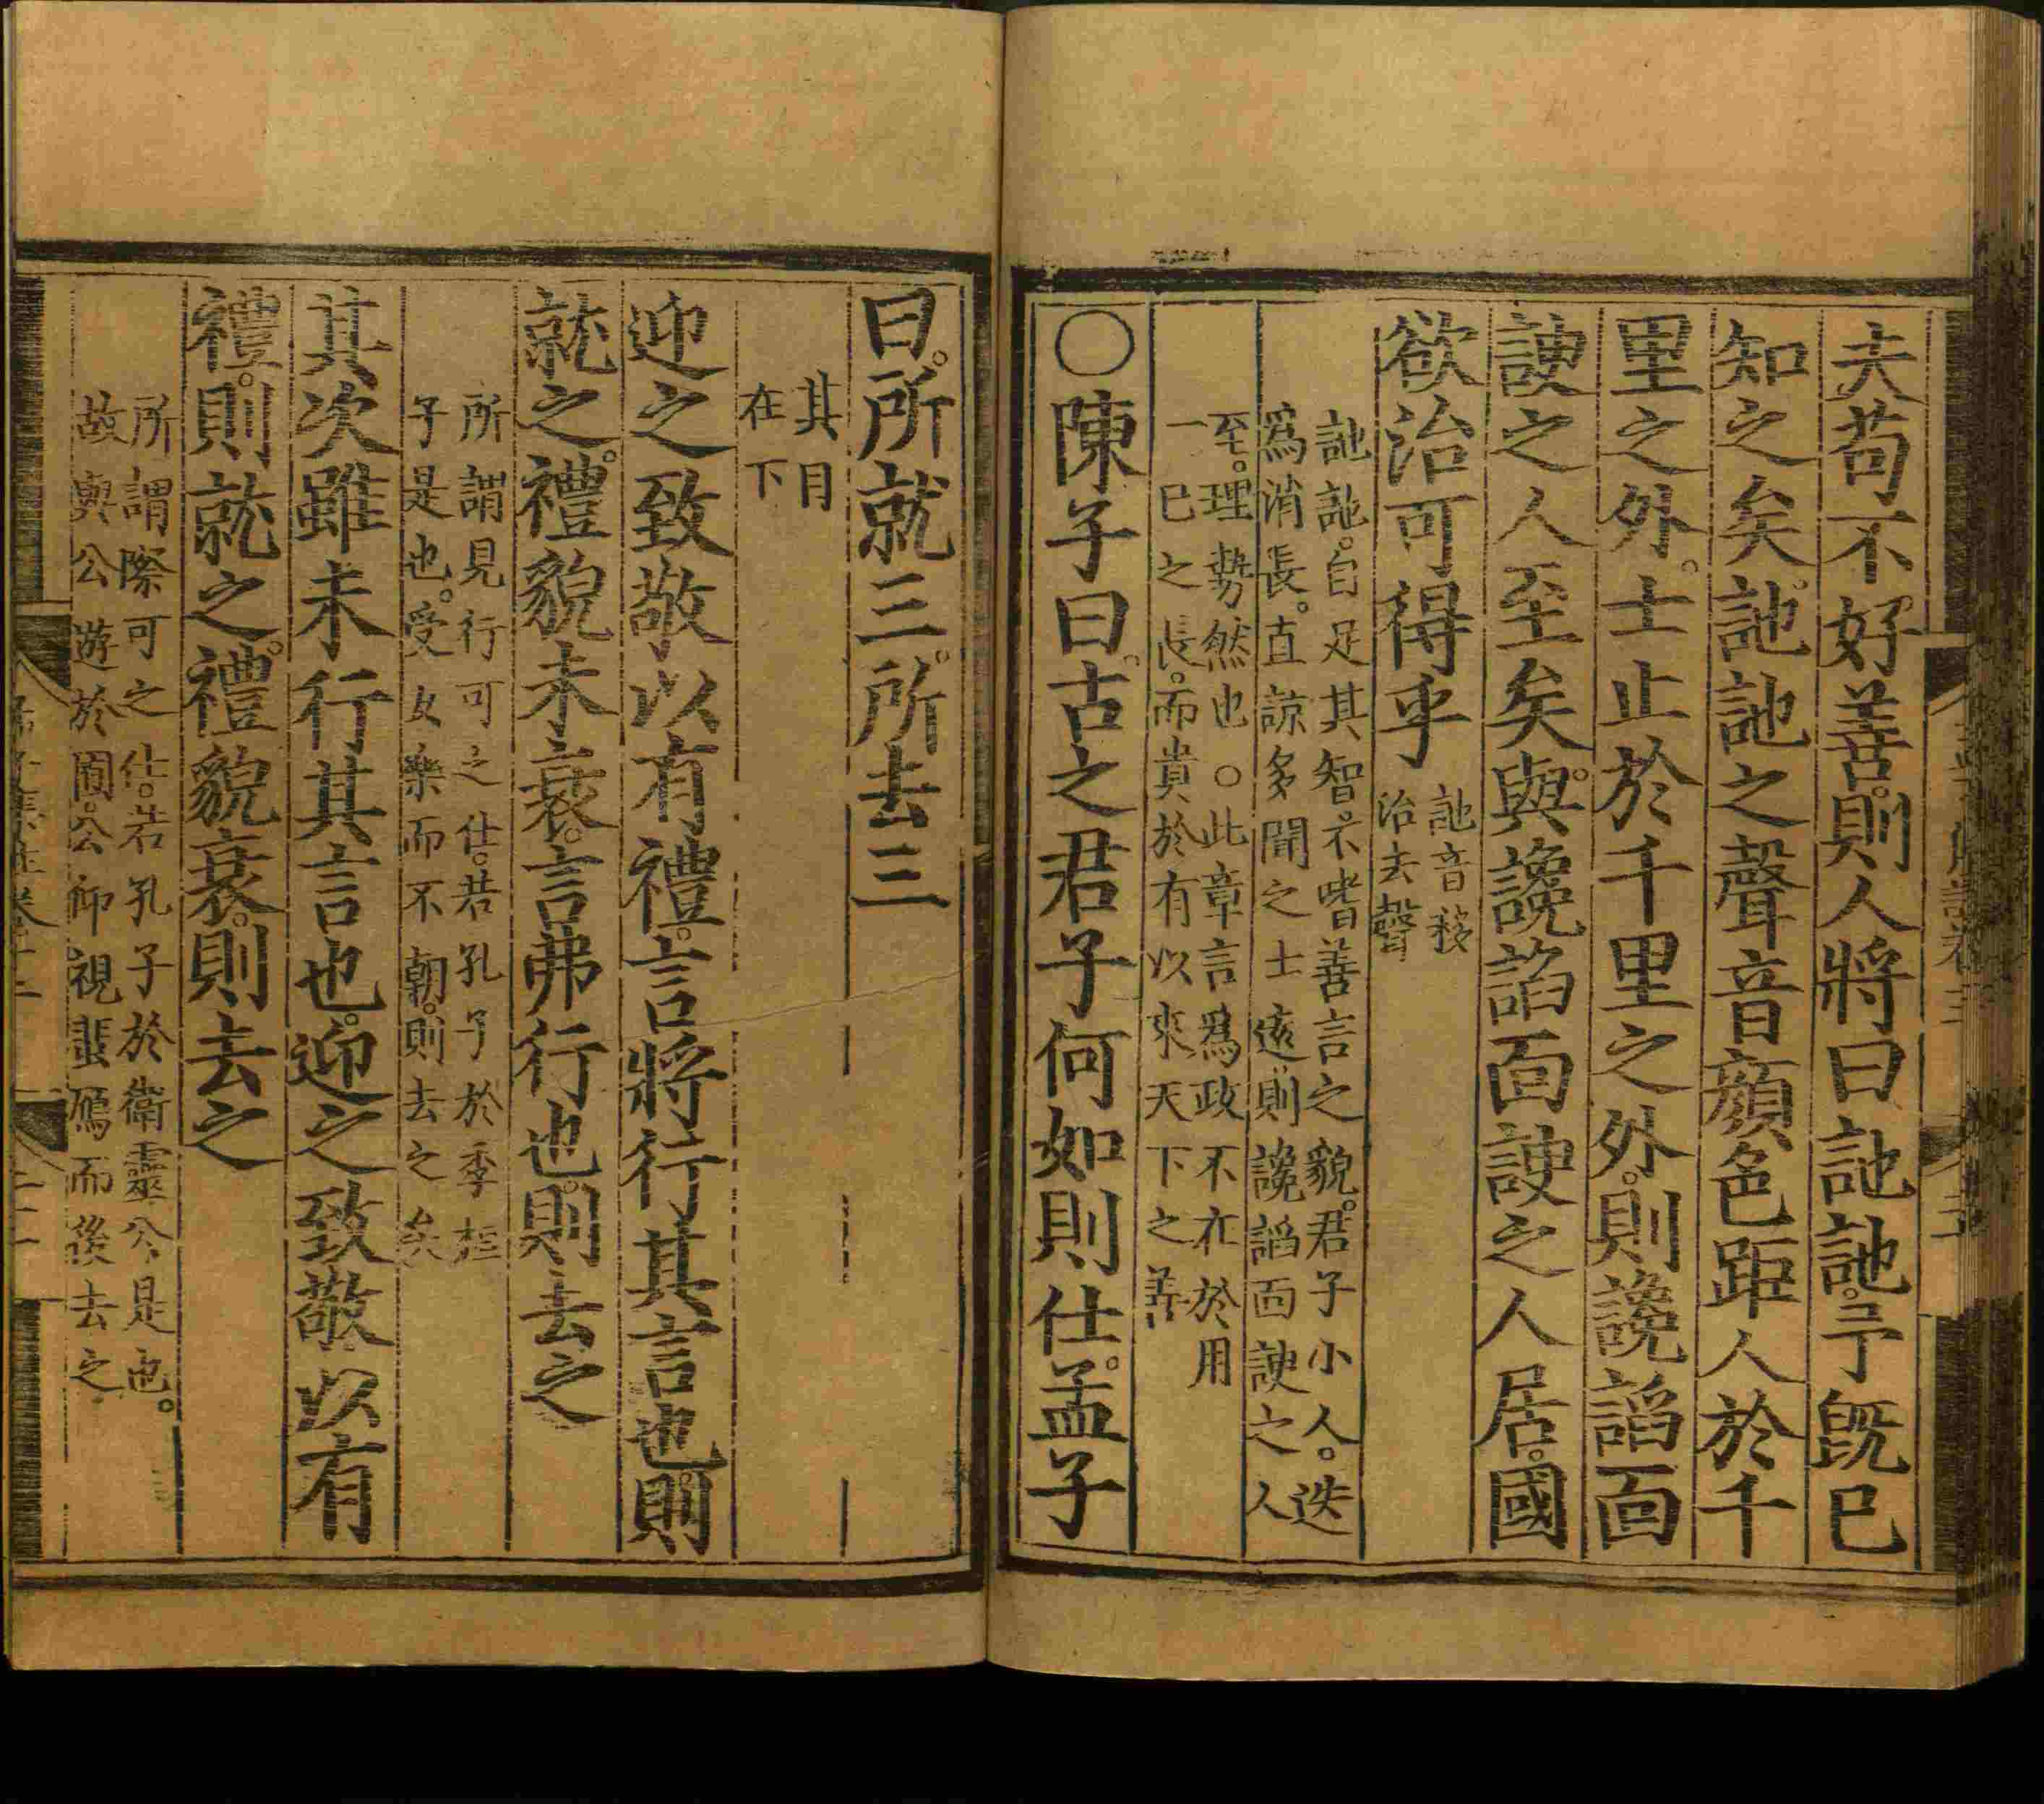 夫苟不好善。則人將曰訑訑。予旣已
知之矣。訑訑之聲音顏色距人於千
里之外。士止於千里之外。則讒謟面
諛之人至矣。與讒謟面諛之人居。國
欲治可得乎
訑音移
治去聲
訑訑。自足其智。不嗜善言之貌。君子小人。迭
爲消長。直諒多聞之士遠。則讒謟面諛之人
至。理勢然也○此章言爲政不在於用
一己之長。而貴於有以來天下之善
○陳子曰。古之君子何如則仕。孟子
曰。所就三。所去三
其目
在下
迎之致敬以有禮。言將行其言也。則
就之。禮貌未衰。言弗行也。則去之
所謂見行可之仕。若孔子於季桓
子是也。受女樂而不朝。則去之矣
其次雖未行其言也。迎之致敬以有
禮。則就之。禮貌衰。則去之
所謂際可之仕。若孔子於衛靈公是也。
故與公遊於囿。公仰視蜚鴈而後去之